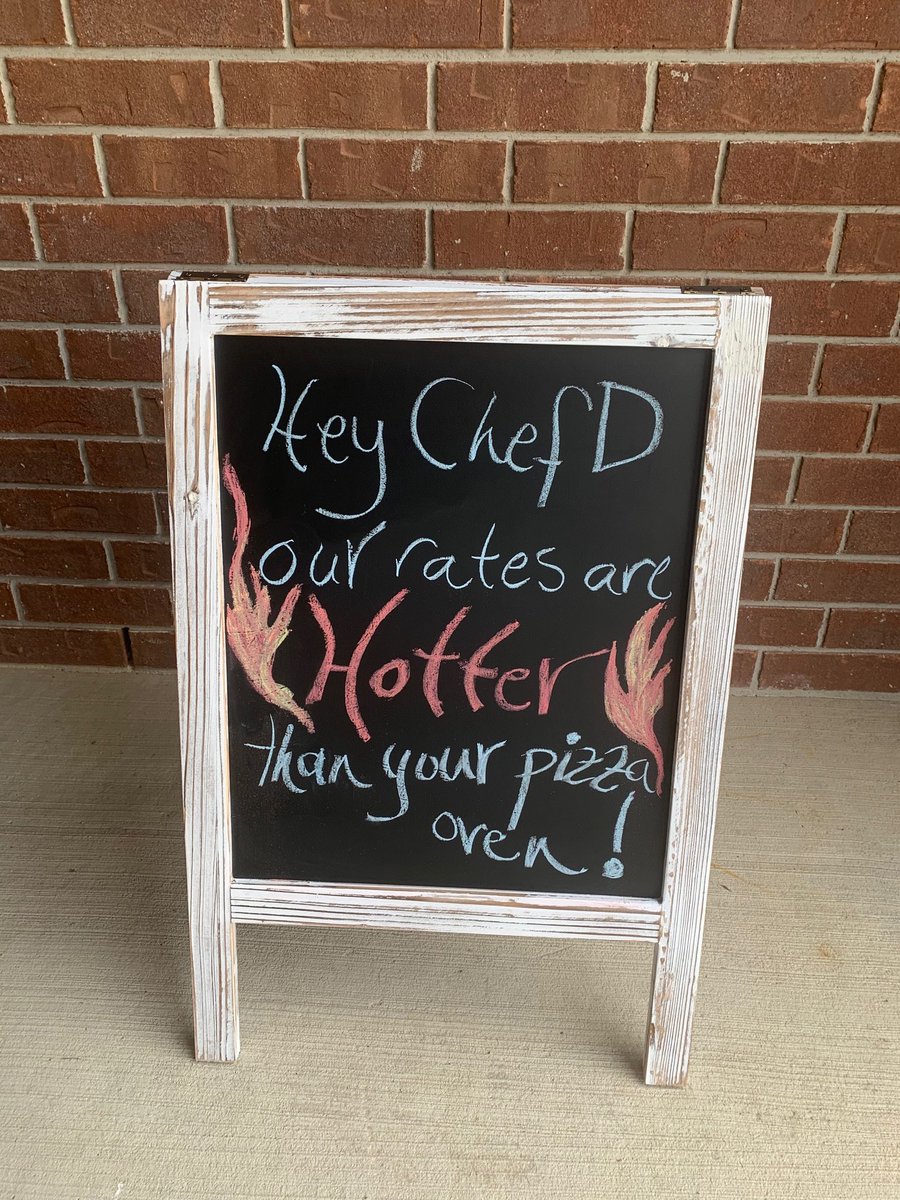 Hey Chef D
our rates are
Hotter
than your pizza
oven!